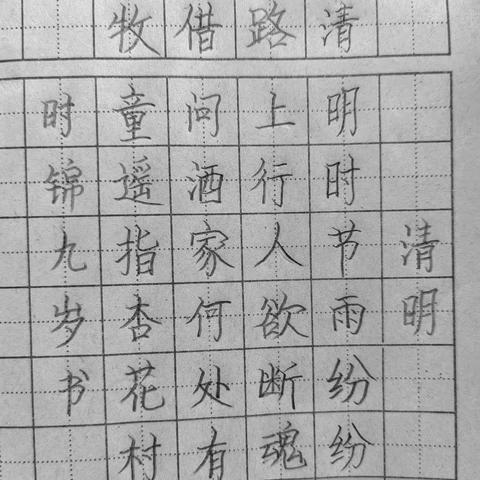 清明
清明时节雨纷纷
路上行人欲断魂
借问酒家何处有
牧童遥指杏花村
时锦九岁书